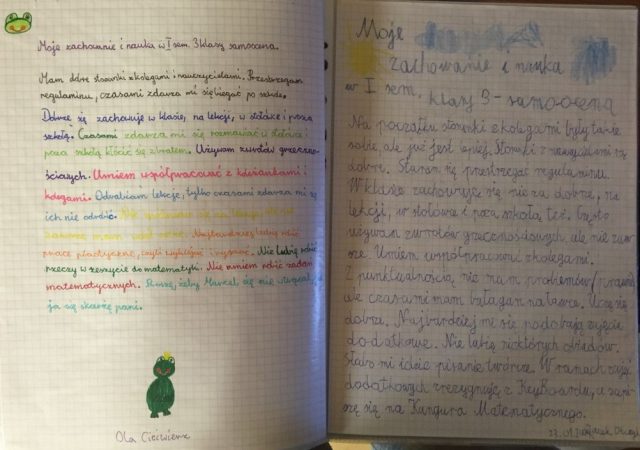 Moje zachowanie i nauka w I sem. 3 klasy samoocena.
Mam dobre stosunki z kolegami i nauczycielami. Przestrzegam
regulaminu, czasami zdarza mi się biegać po szkole.
Dobrze się zachowuję w klasie, na lekcji, w stołówce i poza
szkołą. Czasami zdarza mi się rozmawiać w stołówce i
poza szkołą kłócić się z bratem. Używam zwrotów grzeczno-
ściowych. Umiem współpracować z koleżankami i
kolegami. Odrabiam lekcje, tylko czasami zdarza mi się
ich nie odrobić. Nie spóźniam się na lekcje
Najbardziej lubię robić
prace plastyczne, czyli wyklejać i rysować. Nie lubię robić
rzeczy w zeszycie do matematyki. Nie umiem robić zadań
matematycznych. Proszę, żeby Marcel się nie
ja się skarżę pani.
Ola
Moje
zachowanie i nauka
w I sem. klasy 3 - samoocena
Na początku stosunki z kolegami były takie
sobie, ale już jest lepiej. Stosunki z nauczycielami są
dobre. Staram się przestrzegać regulaminu.
W klasie zachowuję się nie za dobrze, na
lekcji, w stołówce i poza szkołą też. Często
używam zwrotów grzecznościowych, ale nie zaw-
sze. Umiem współpracować z kolegami.
Z punktualnością nie mam problemów
ale czasami mam bałagan na ławce. Uczę się
dobrze. Najbardziej mi się podobają zajęcia
dodatkowe. Nie lubię niektórych obiadów.
Słabo mi idzie pisanie twórcze. W ramach zajęć
dodatkowych zrezygnuję z Keyboardu, a zapi-
szę się na Kangura Matematycznego.